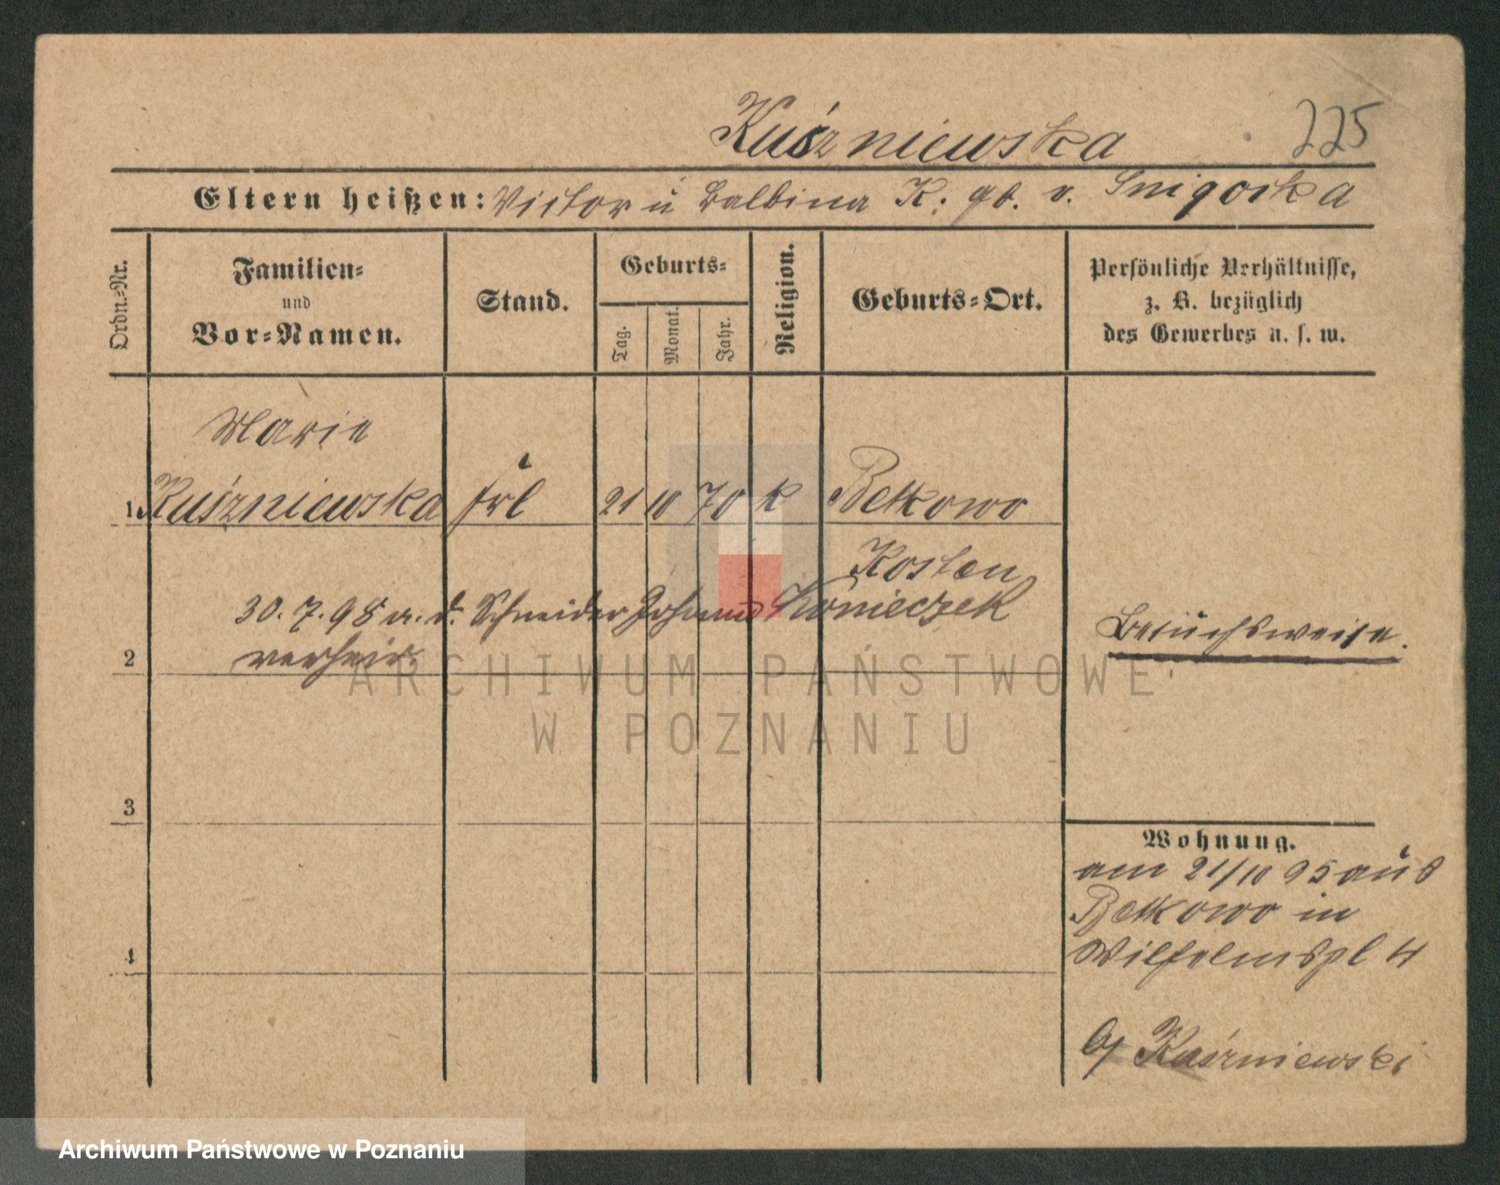 Kuśzniewska 225
Eltern heißen: Victor u Balbina K. gb. v.
Ordn.-Nr.
Familien-
und
Vor-Namen.
Stand.
Geburts-
Tag.
Monat.
Jahr.
Religion.
Geburts-Ort.
Persönliche Verhältnisse,
z. B. bezüglich
des Gewerbes u. s. w.
Marie
1 Kuśzniewska Frl 21 10 70 k Betkowo
Kosten
30. 7. 98 a. d. Schneider Johann Konieczek
2 verheir.
Besuchsweise.
3
4
Wohnung.
am 21/10 95 aus
Betkowo in
Wilhelmspl 4
Kuśzniewski
ARCHIWUM PAŃSTWOWE
W POZNANIU
Archiwum Państwowe w Poznaniu